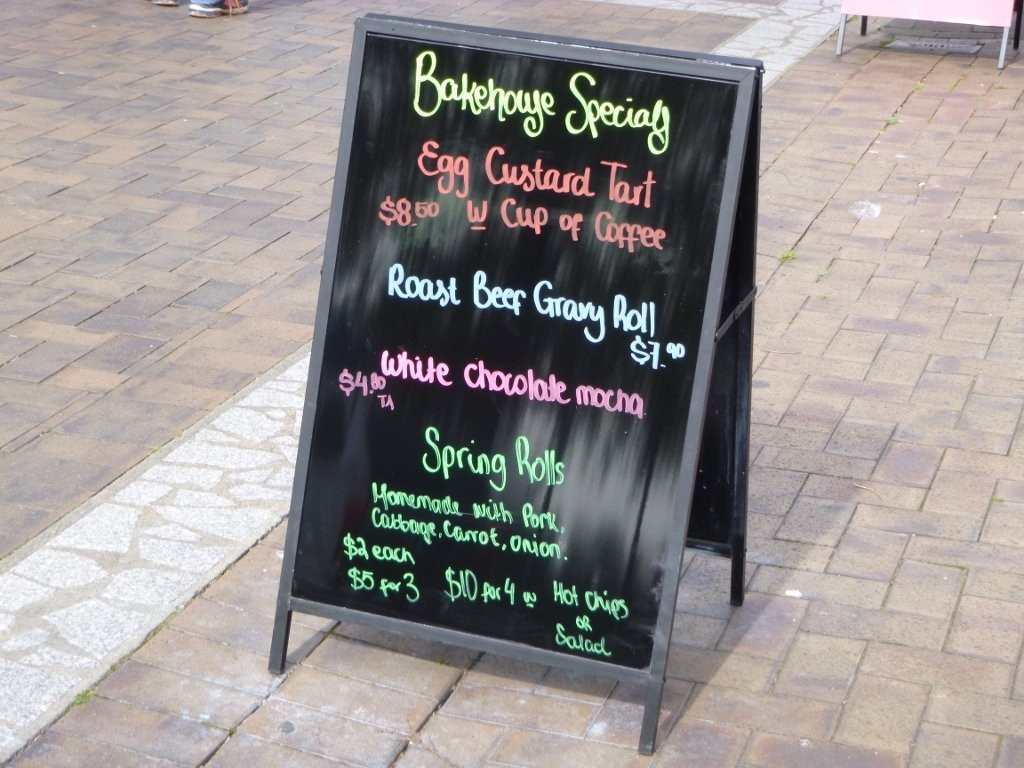 Bakehouse Specials
Egg Custard Tart
$8.50 w Cup of Coffee
Roast Beef Gravy Roll
$7.90
White chocolate mocha
$4.80
TA
Spring Rolls
Homemade with Pork,
Cabbage, Carrot, Onion.
$2 each
$5 for 3 $10 for 4 w Hot chips
or
Salad